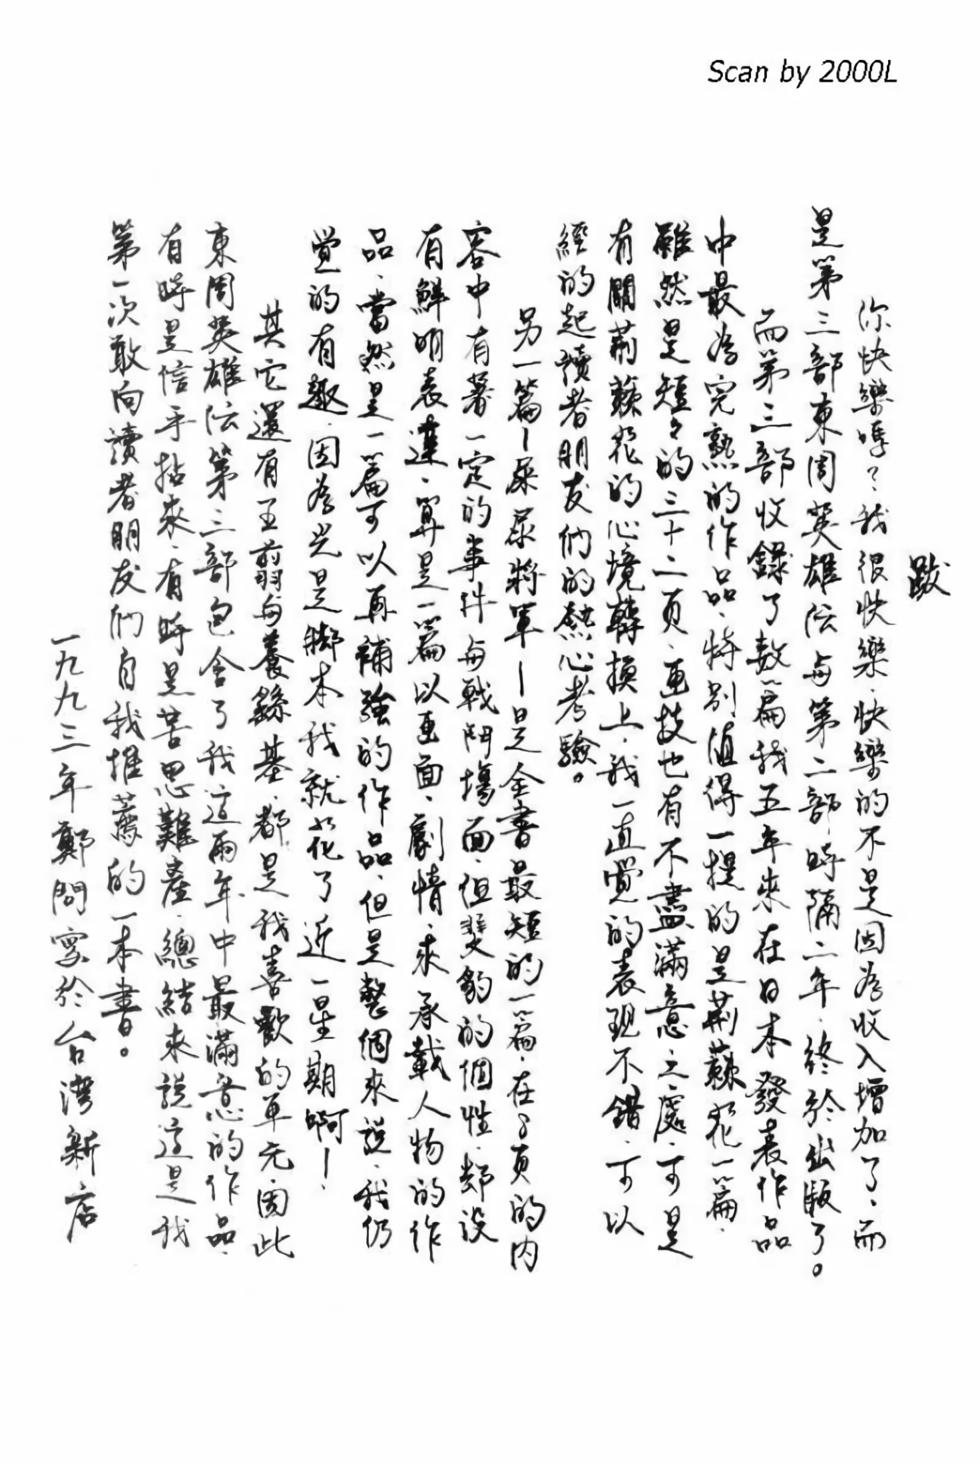 Scan by 2000L
跋
你快樂嗎？我很快樂．快樂的不是因為收入增加了，而
是第三部東周英雄伝與第二部時隔二年，終於出版了。
而第三部收錄了数篇我五年來在日本發表作品
中最為完熟的作品．特別值得一提的是荊軻一篇．
雖然是短々的三十二頁．画技也有不盡滿意之處．可是
有關荊軻的心境轉換上．我一直覺的表現不錯．可以
經的起讀者朋友們的熱心考驗。
另一篇－屎尿將軍－是全書最短的一篇．在8頁的內
容中有著一定的事件與戰鬥場面．但斐豹的個性．却沒
有鮮明表達．算是一篇以画面．劇情．來承載人物的作
品．當然是一篇可以再補強的作品．但是整個來說．我仍
覺的有趣．因為光是脚本我就花了近一星期啊！
其它還有王翦與養繇基．都是我喜歡的單元．因此
東周英雄伝第三部包含了我這兩年中最滿意的作品．
有時是信手拈來．有時是苦思難產．總結來說這是我
第一次敢向讀者朋友們自我推薦的一本書。
一九九三年鄭問寫於台灣新店